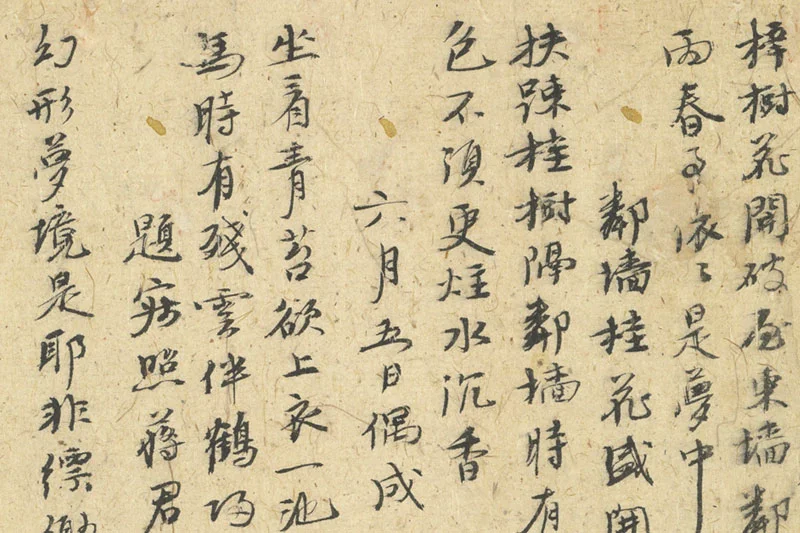 梓樹花開破屋東墙鄰
雨春事依〻是夢中
鄰墙桂花盛開
扶踈桂樹隔鄰墙時有
色不須更炷水沉香
六月五日偶成
坐看青苔欲上衣一池
馬時有殘雲伴鶴歸
題寂照蔣君
幻形夢境是耶非縹緲